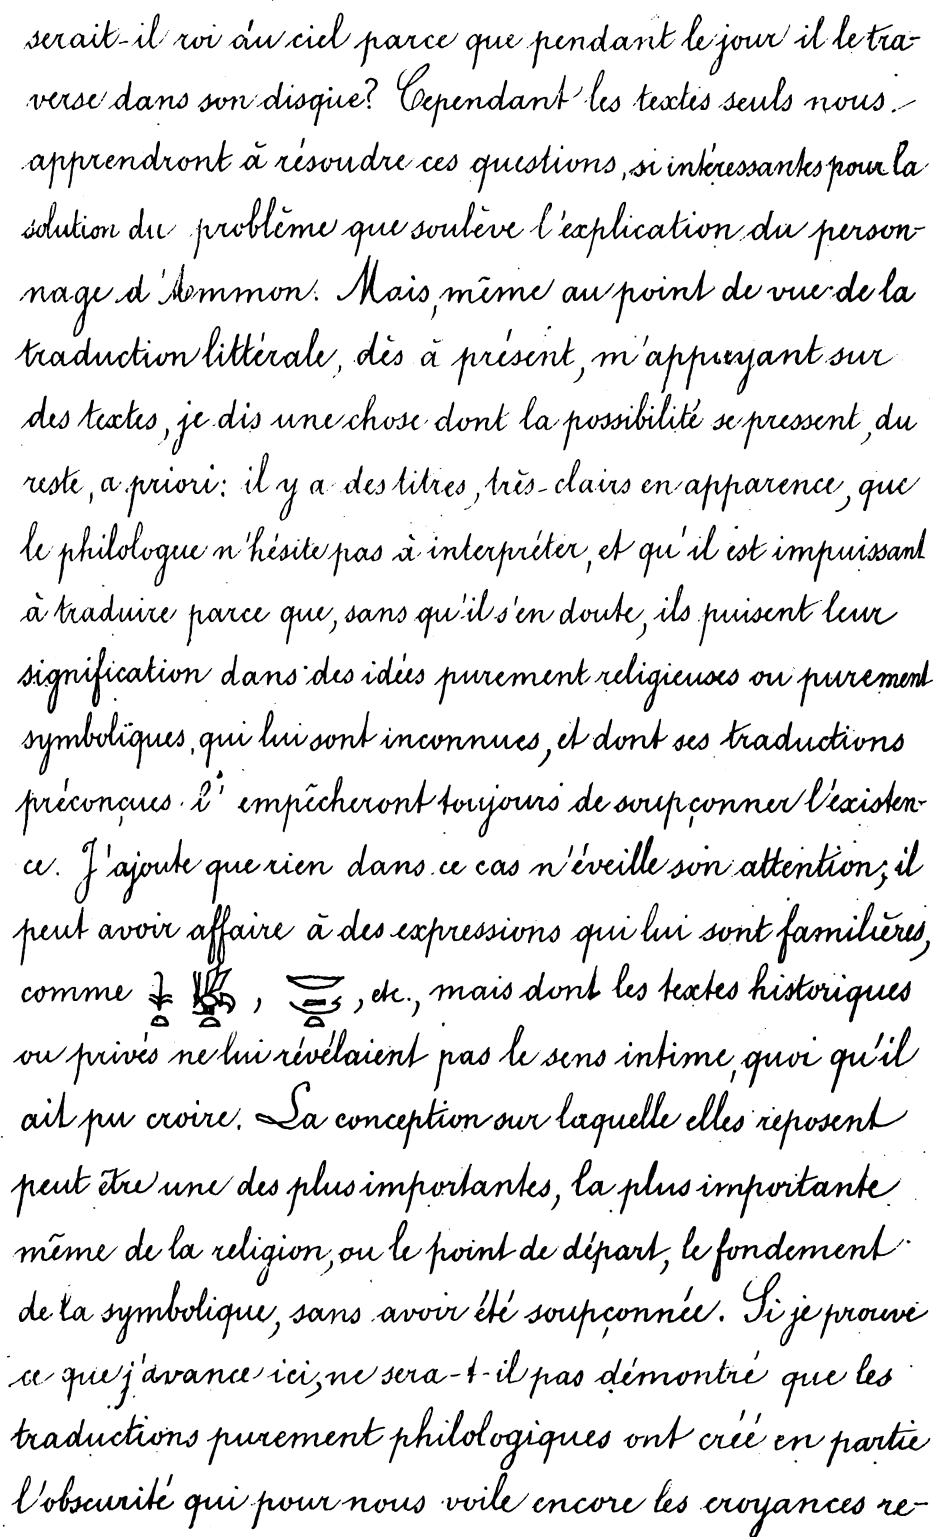 serait-il roi du ciel parce que pendant le jour il le tra-
verse dans son disque? Cependant les textes seuls nous
apprendront à résoudre ces questions, si intéressantes pour la
solution du problème que soulève l'explication du person-
nage d'Ammon. Mais, même au point de vue de la
traduction littérale, dès à présent, m'appuyant sur
des textes, je dis une chose dont la possibilité se pressent, du
reste, a priori: il y a des titres, très-clairs en apparence, que
le philologue n'hésite pas à interpréter, et qu'il est impuissant
à traduire parce que, sans qu'il s'en doute, ils puisent leur
signification dans des idées purement religieuses ou purement
symboliques, qui lui sont inconnues, et dont ses traductions
préconçues l' empêcheront toujours de soupçonner l'existen-
ce. J'ajoute que rien dans ce cas n'éveille son attention; il
peut avoir affaire à des expressions qui lui sont familières,
comme , , etc., mais dont les textes historiques
ou privés ne lui révélaient pas le sens intime, quoi qu'il
ait pu croire. La conception sur laquelle elles reposent
peut être une des plus importantes, la plus importante
même de la religion, ou le point de départ, le fondement
de la symbolique, sans avoir été soupçonnée. Si je prouve
ce que j'avance ici, ne sera-t-il pas démontré que les
traductions purement philologiques ont créé en partie
l'obscurité qui pour nous voile encore les croyances re-